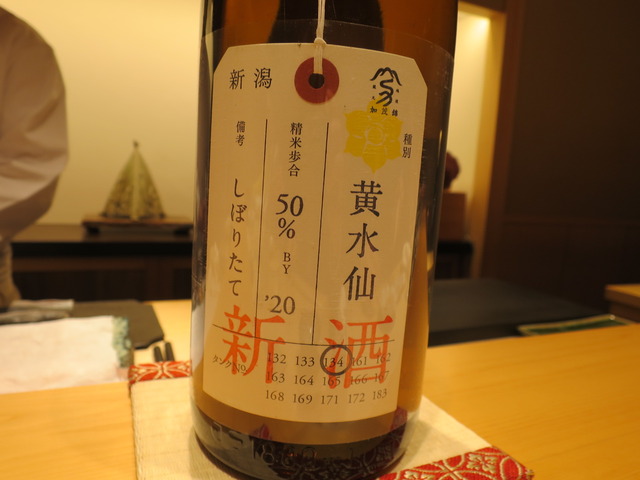 新潟
加茂錦
種別
黄水仙
精米歩合
50%
BY
'20
備考
しぼりたて
新酒
タンクNo
132 133 134 161 162
163 164 165 166 167
168 169 171 172 183